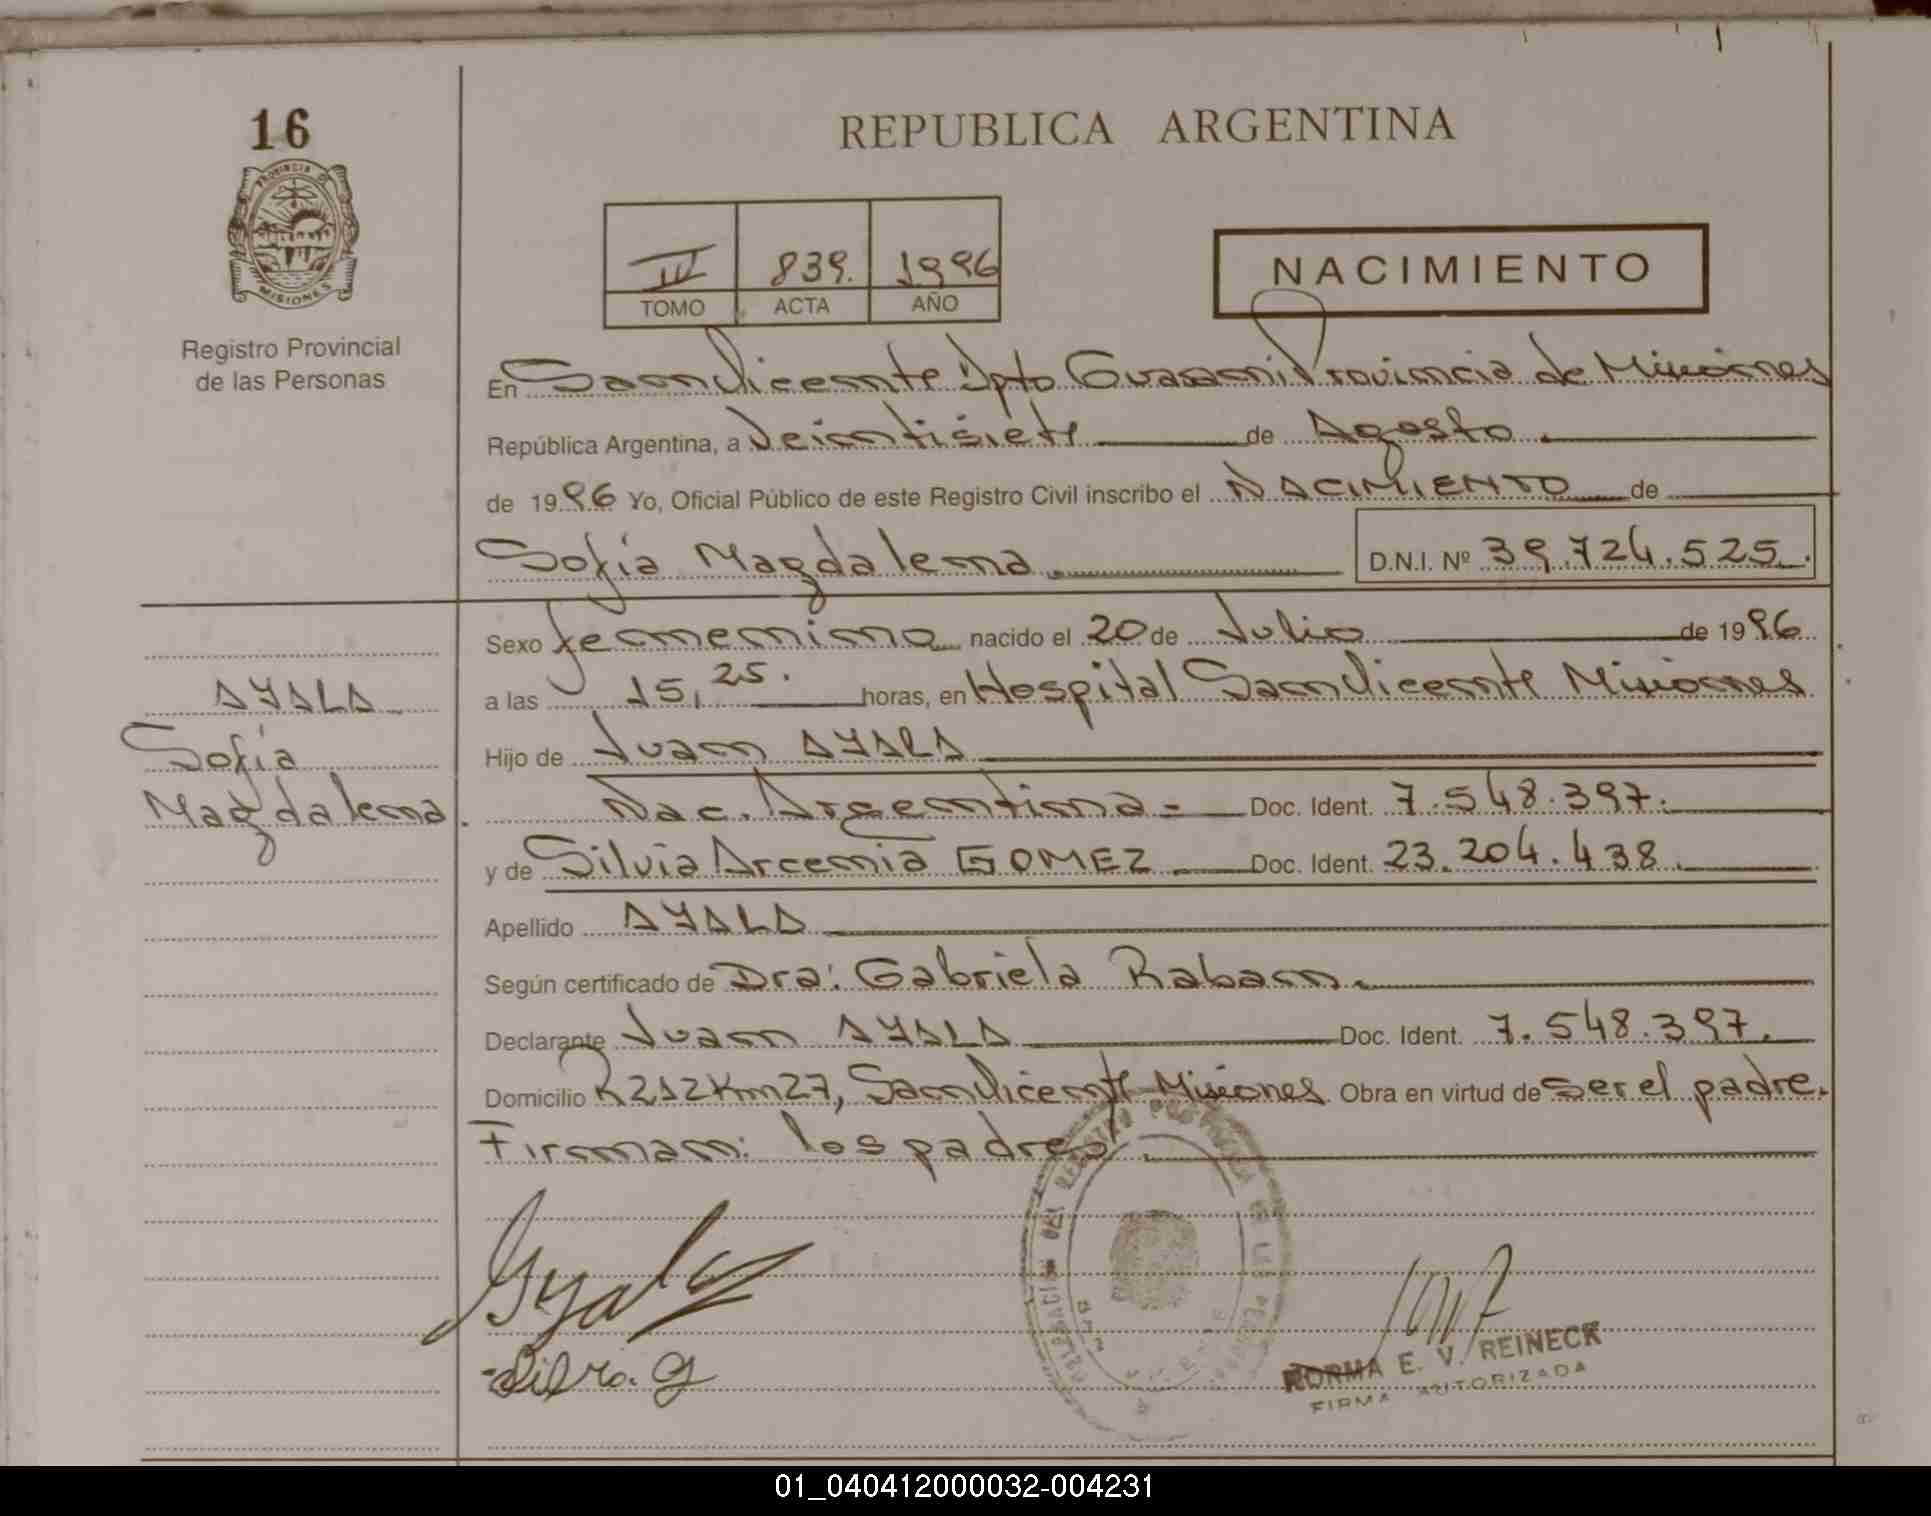 16
PROVINCIA DE
MISIONES
Registro Provincial
de las Personas
REPUBLICA ARGENTINA
III 839. 1996
TOMO ACTA AÑO
NACIMIENTO
En San Vicente Dpto Guarani Provincia de Misiones
República Argentina, a Veintisiete de Agosto
de 1996 Yo, Oficial Público de este Registro Civil inscribo el NACIMIENTO de
Sofía Magdalena D.N.I. Nº 39.724.525.
Sexo femenino nacido el 20 de Julio de 1996
a las 15,25. horas, en Hospital San Vicente Misiones
Hijo de Juan AYALA
Nac. Argentina = Doc. Ident. 7.548.397.
y de Silvia Arcenia GOMEZ Doc. Ident. 23.204.438.
Apellido AYALA
Según certificado de Dra: Gabriela Raban.
Declarante Juan AYALA Doc. Ident. 7.548.397.
Domicilio R212Km27, San Vicente Misiones Obra en virtud de ser el padre.
Firman: los padres.
AYALA
Sofía
Magdalena.
NORMA E. V. REINECK
FIRMA AUTORIZADA
01_040412000032-004231